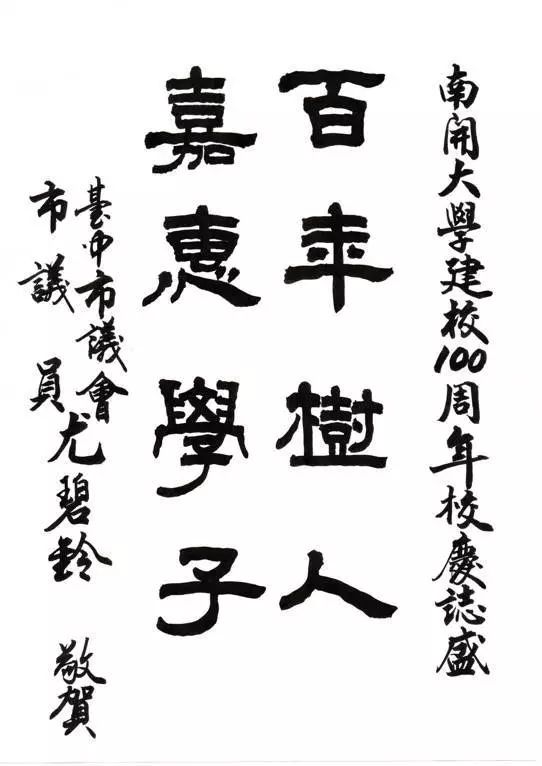 南開大學建校100周年校慶誌盛
百年樹人
嘉惠學子
臺中市議會
市議員尤碧鈴 敬賀